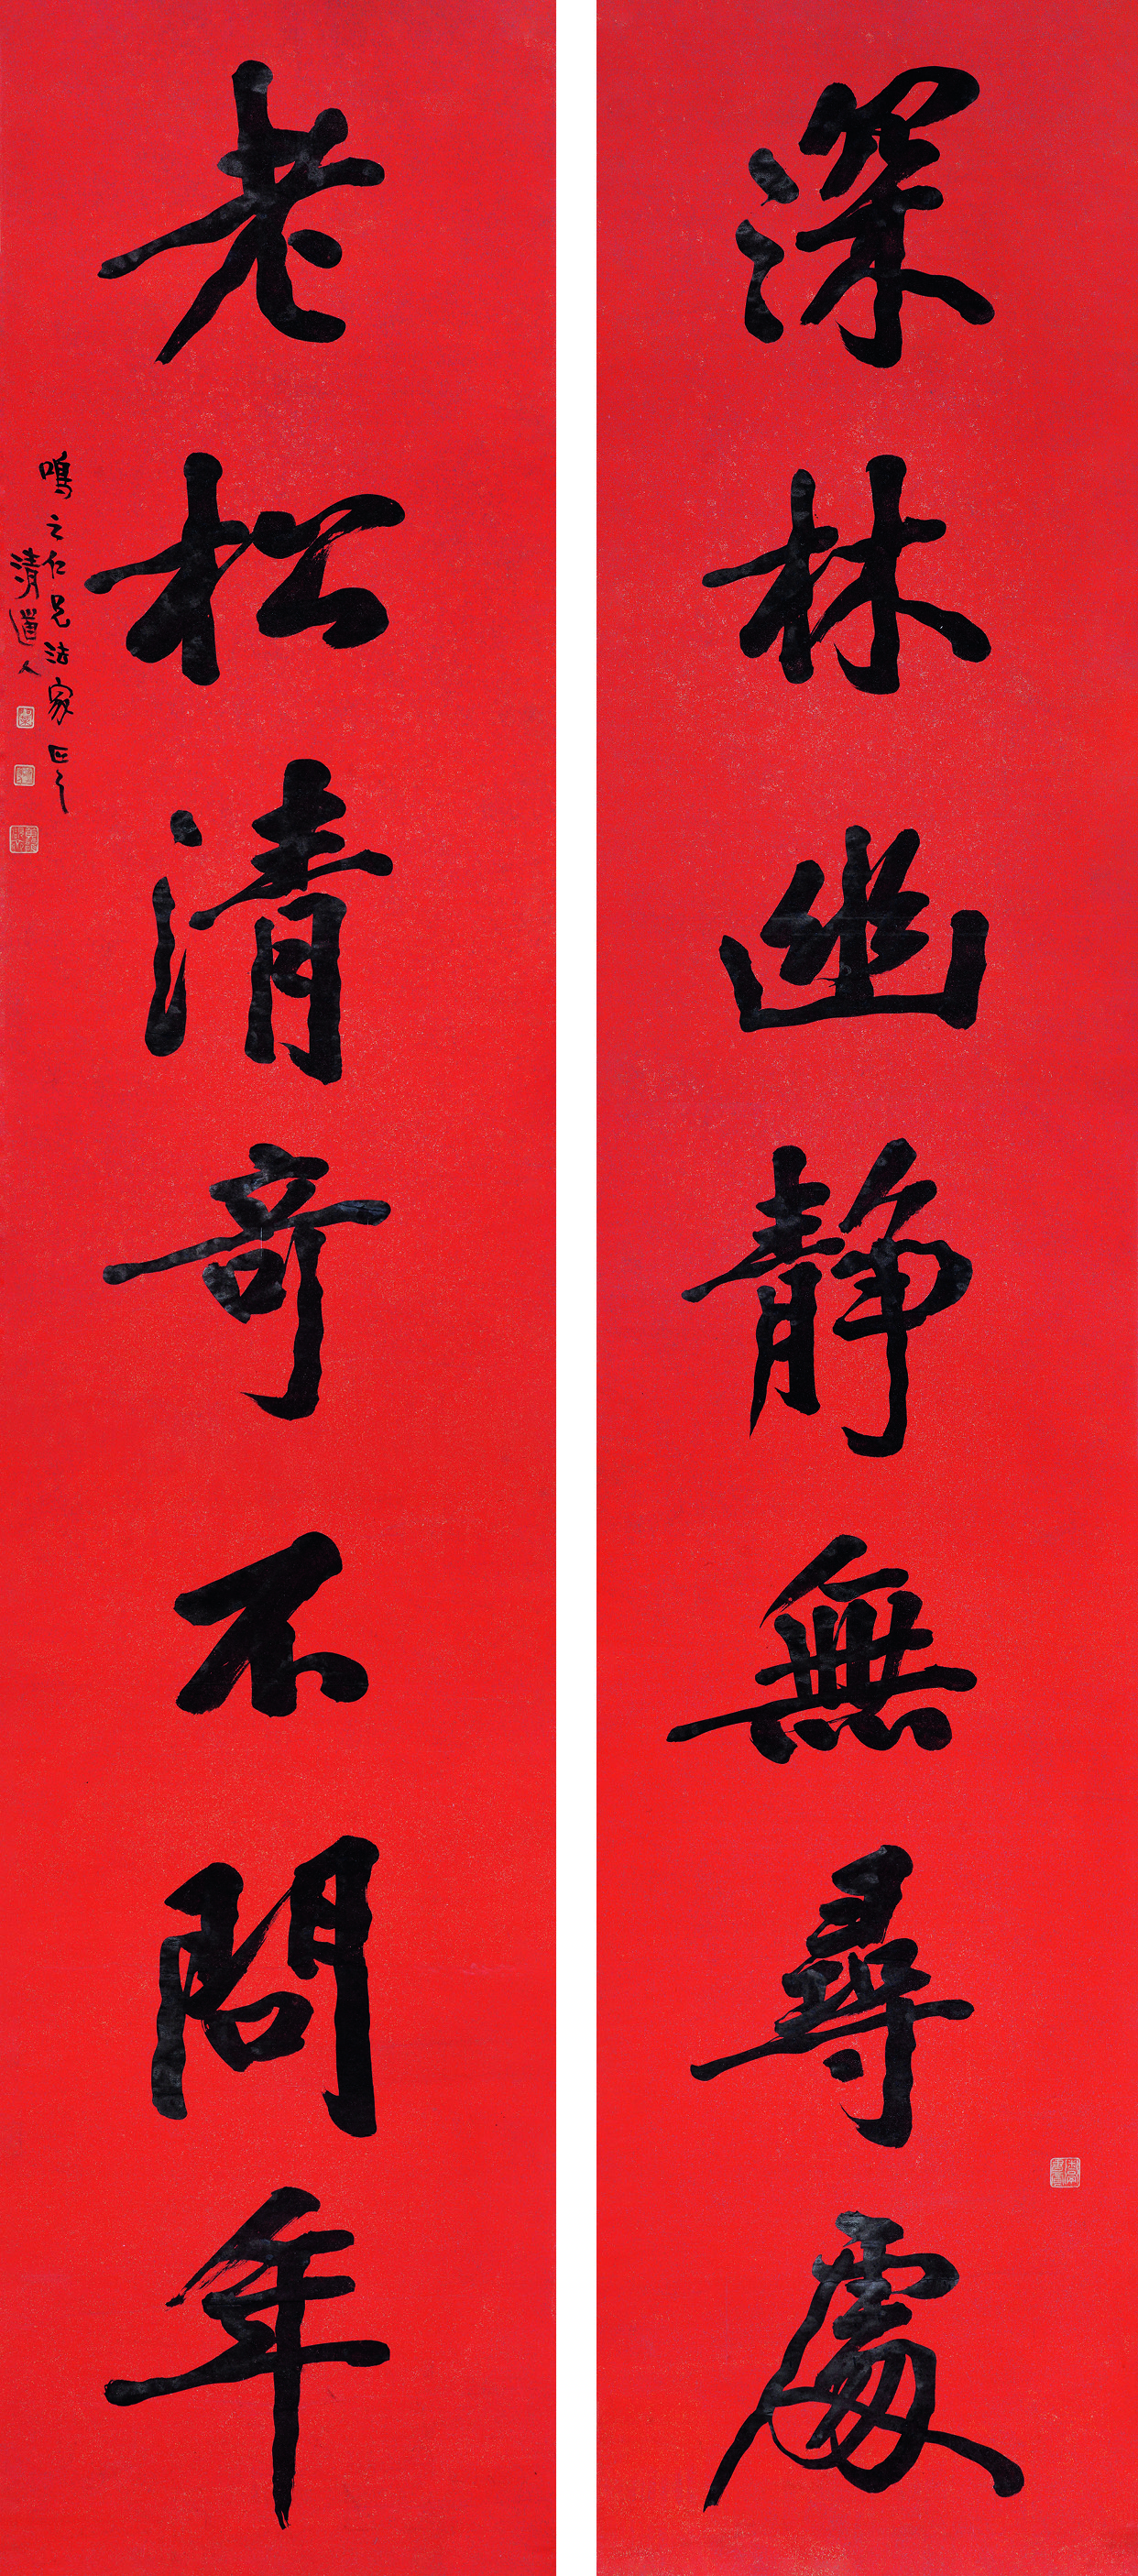 深林幽靜無尋處
老松清奇不問年
鳴之仁兄法家正之
清道人